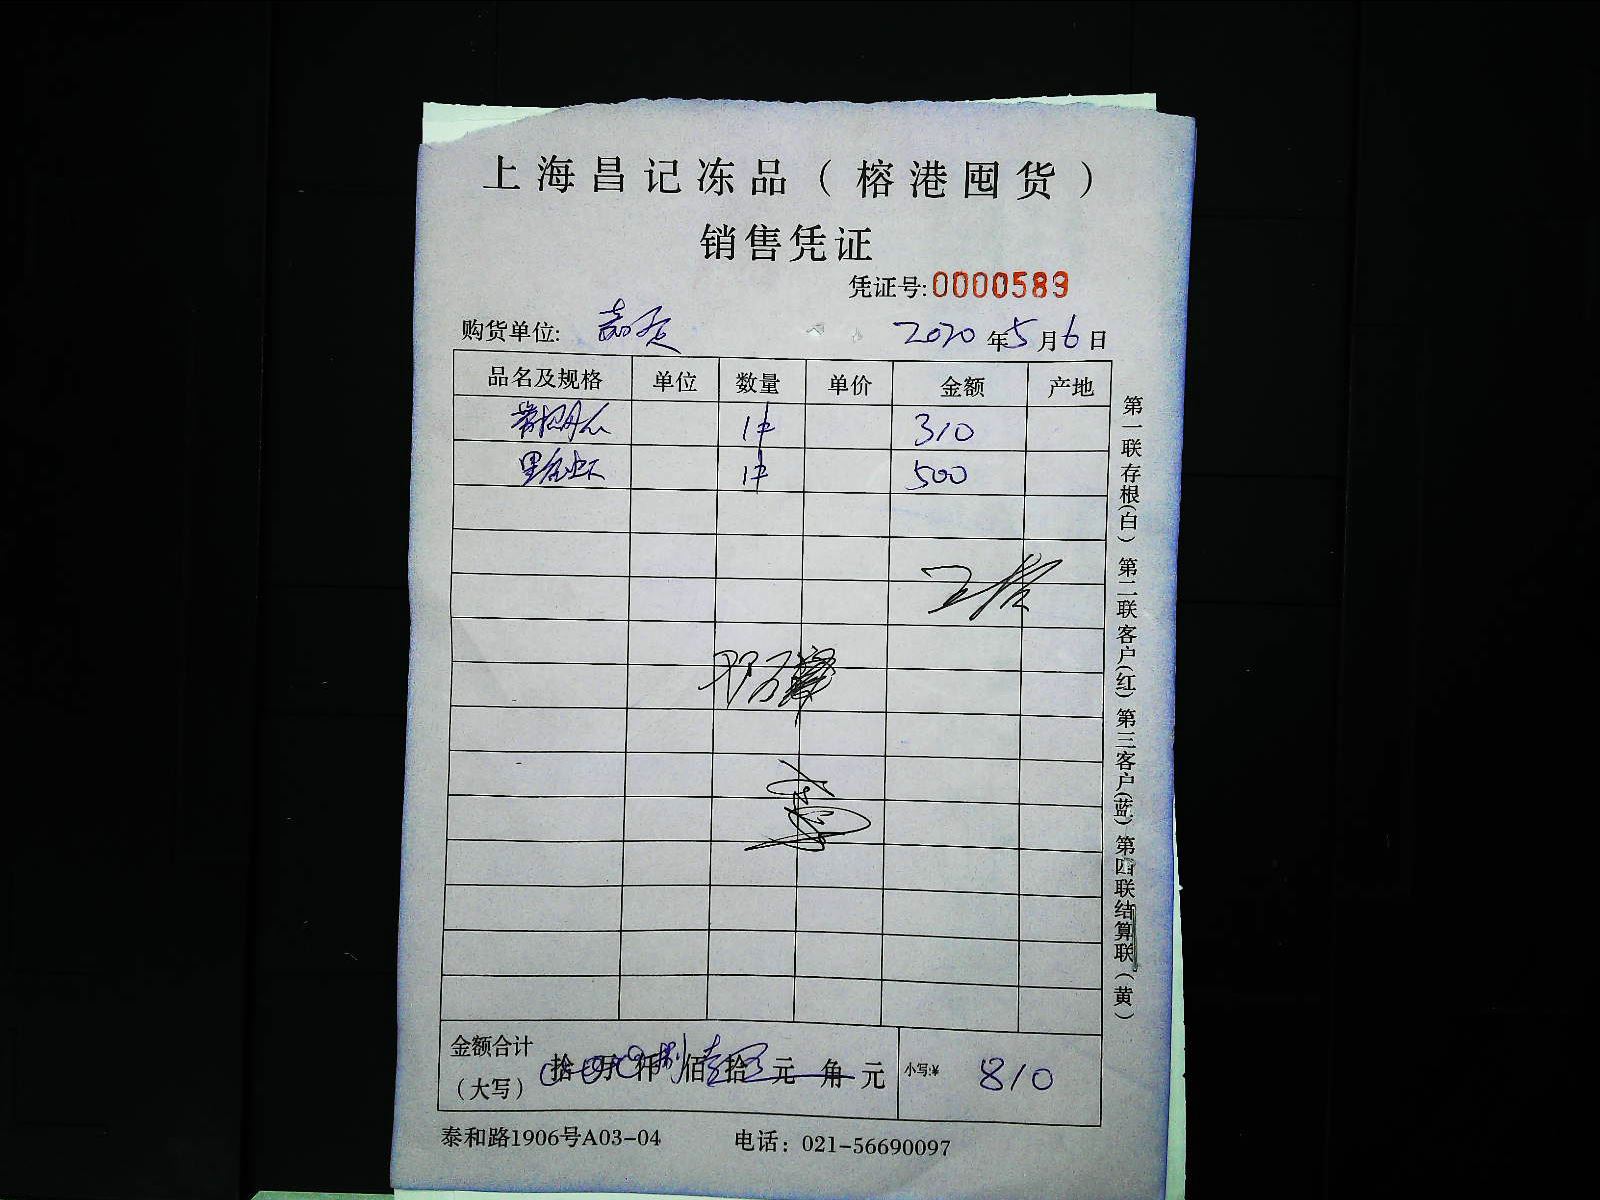 上海昌记冻品（榕港囤货）
销售凭证
凭证号:0000589
购货单位:
2020年5月6日
品名及规格 单位 数量 单价 金额 产地
1件 310
1件 500
第一联存根(白) 第二联客户(红) 第三客户(蓝) 第四联结算联(黄)
金额合计
（大写） 拾 万 仟 捌佰 壹拾 元 角 元 小写:¥ 810
泰和路1906号A03-04 电话：021-56690097